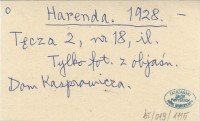 Harenda. 1928. –
Tęcza 2, nr 18, il.
Tylko fot. z objaśn.
Dom Kasprowicza.